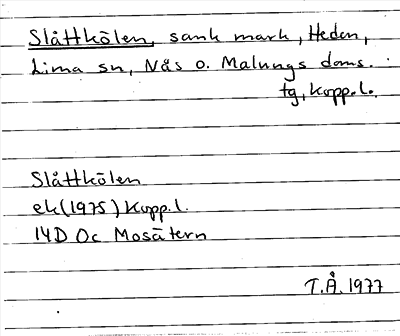 Slåttkölen, sank mark, Heden,
Lima sn, Nås o. Malungs doms.
tg, Kopp.l.
Slåttkölen
ek(1975) Kopp.l.
14D 0c Mosätern
T.Å. 1977